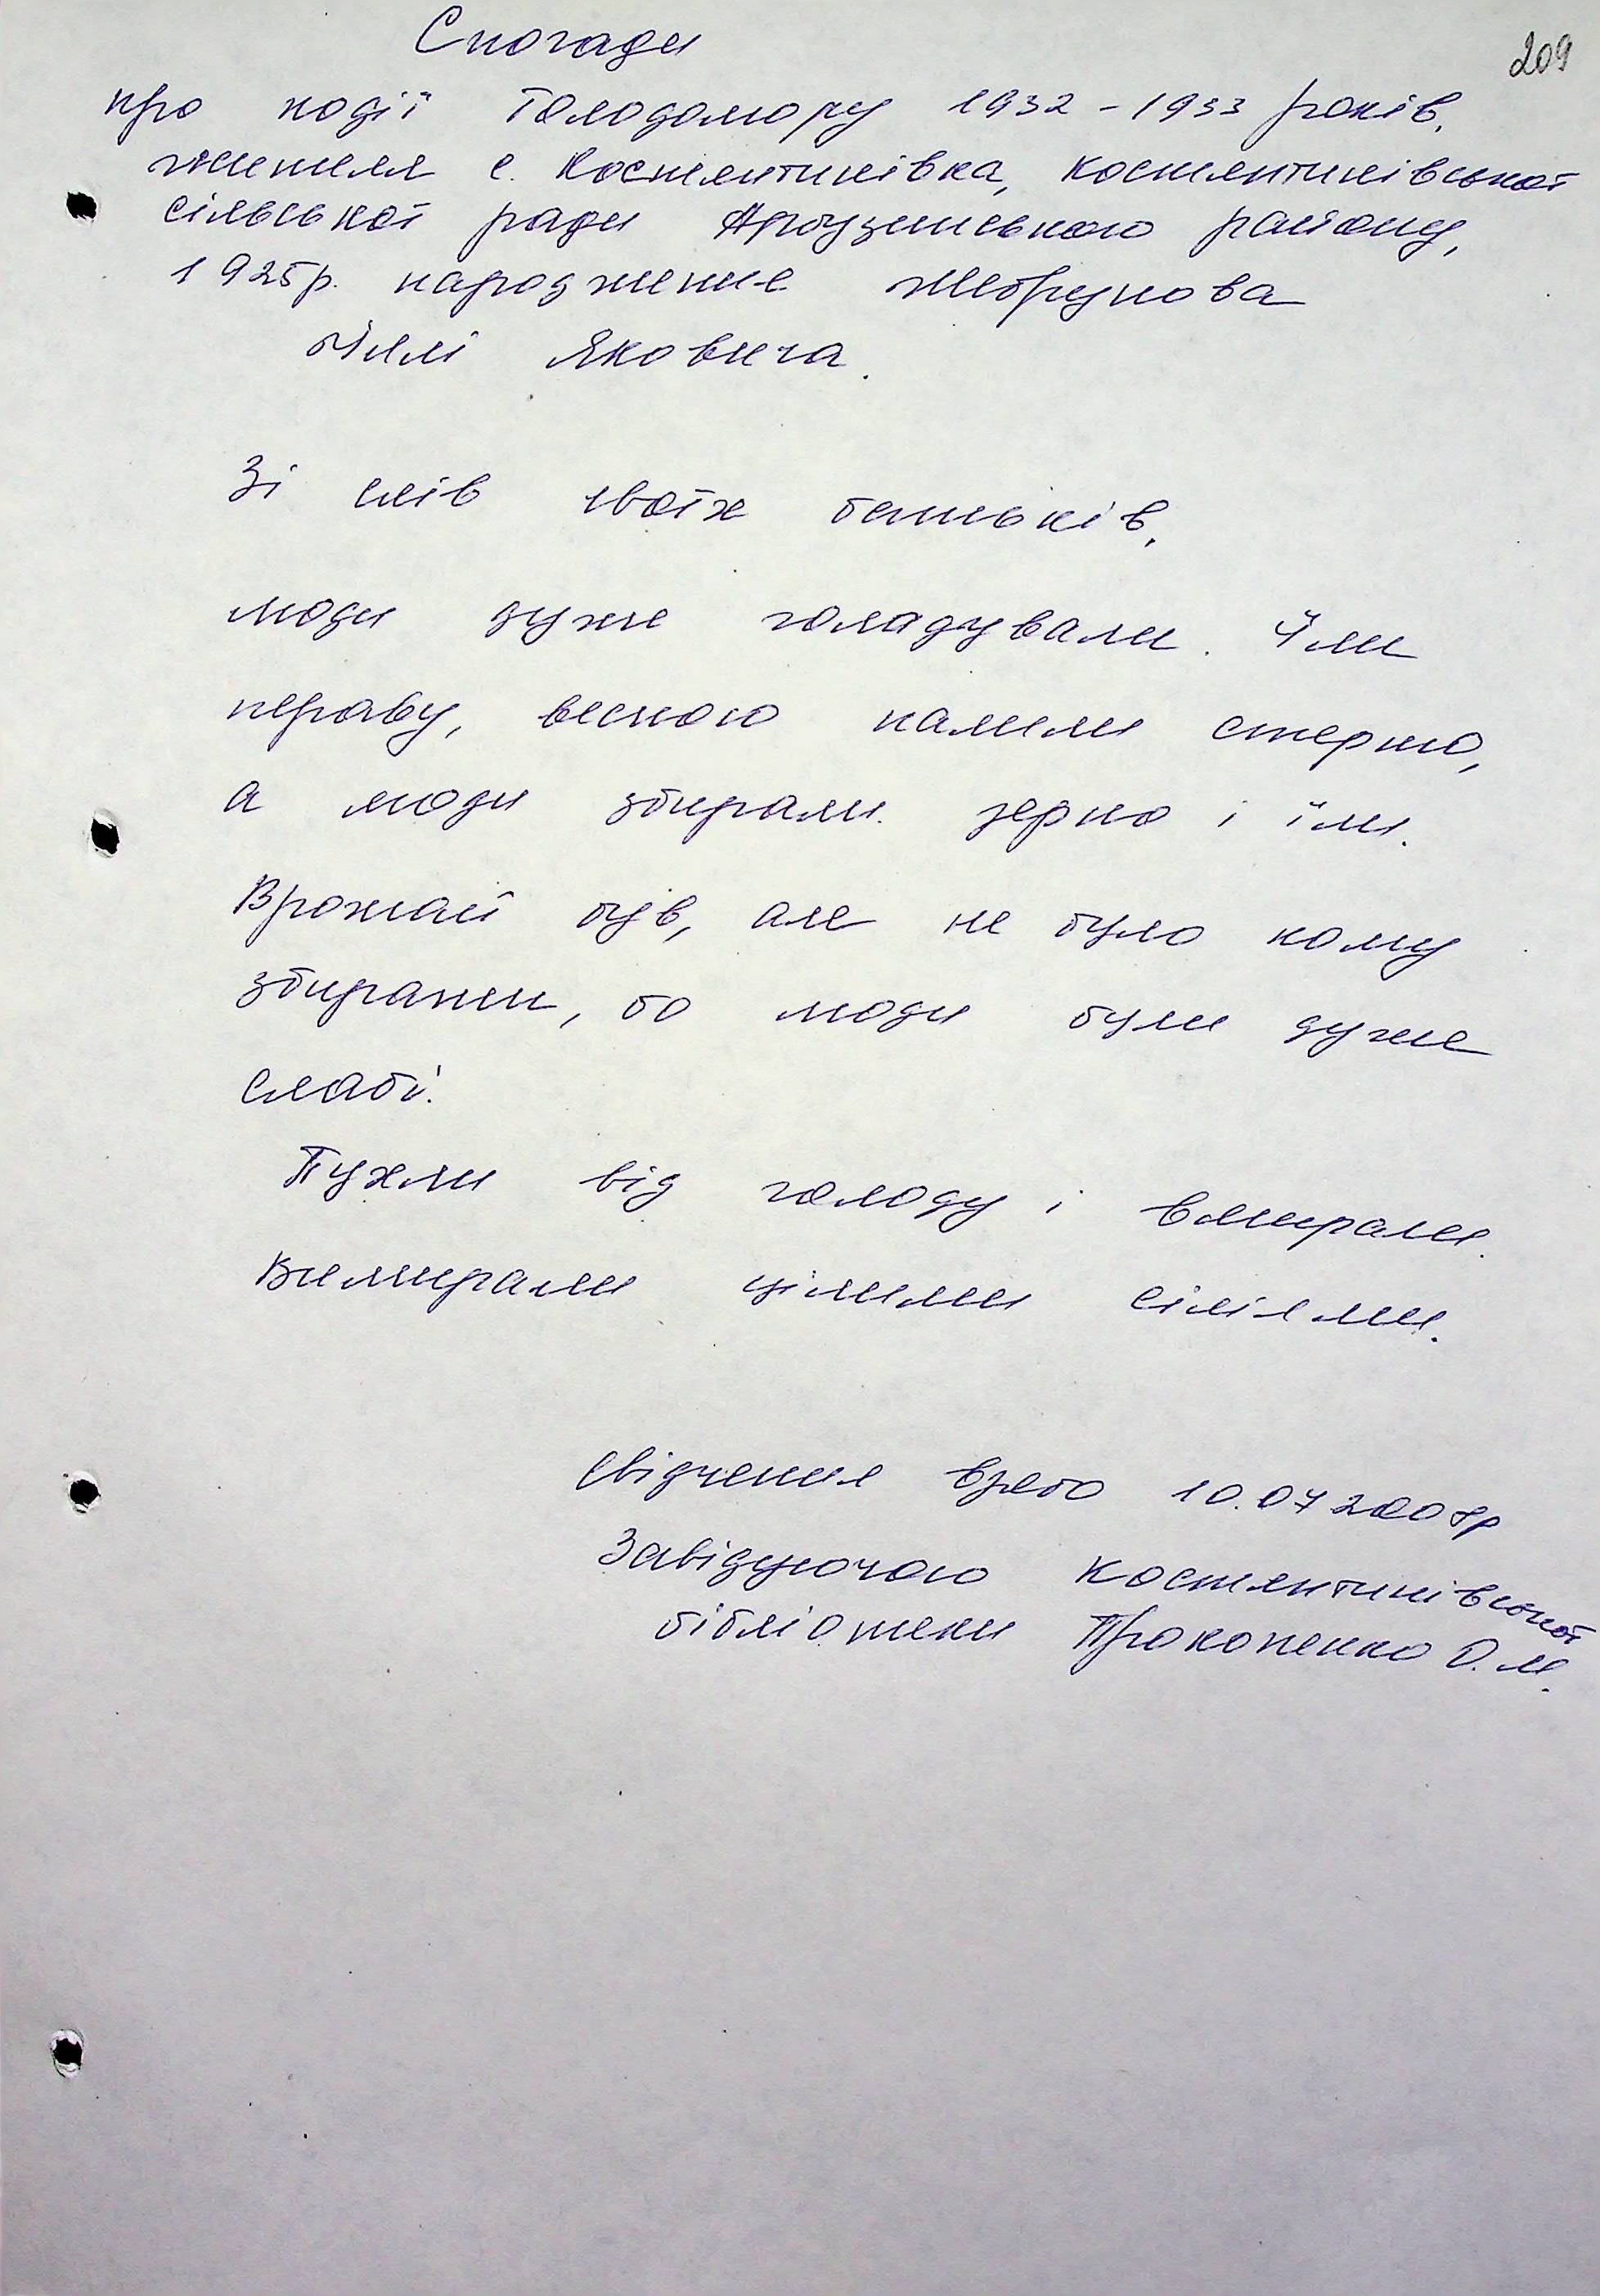 Спогади
209
про події Голодомору 1932-1933 років,
жителя с. Костянтинівка, Костянтинівської
сільської ради Арбузинського району,
1925р. народження Жебрунова
Іллі Яковича.
Зі слів своїх батьків,
люди дуже голодували. Їли
траву, весною палили стерню,
а люди збирали зерно і їли.
Врожай був, але не було кому
збирати, бо люди були дуже
слабі.
Пухли від голоду і вмирали.
Вимирали цілими сім'ями.
Свідчення взято 10.07 2008р
Завідуючою Костянтинівської
бібліотеки Прокопенко О.М.